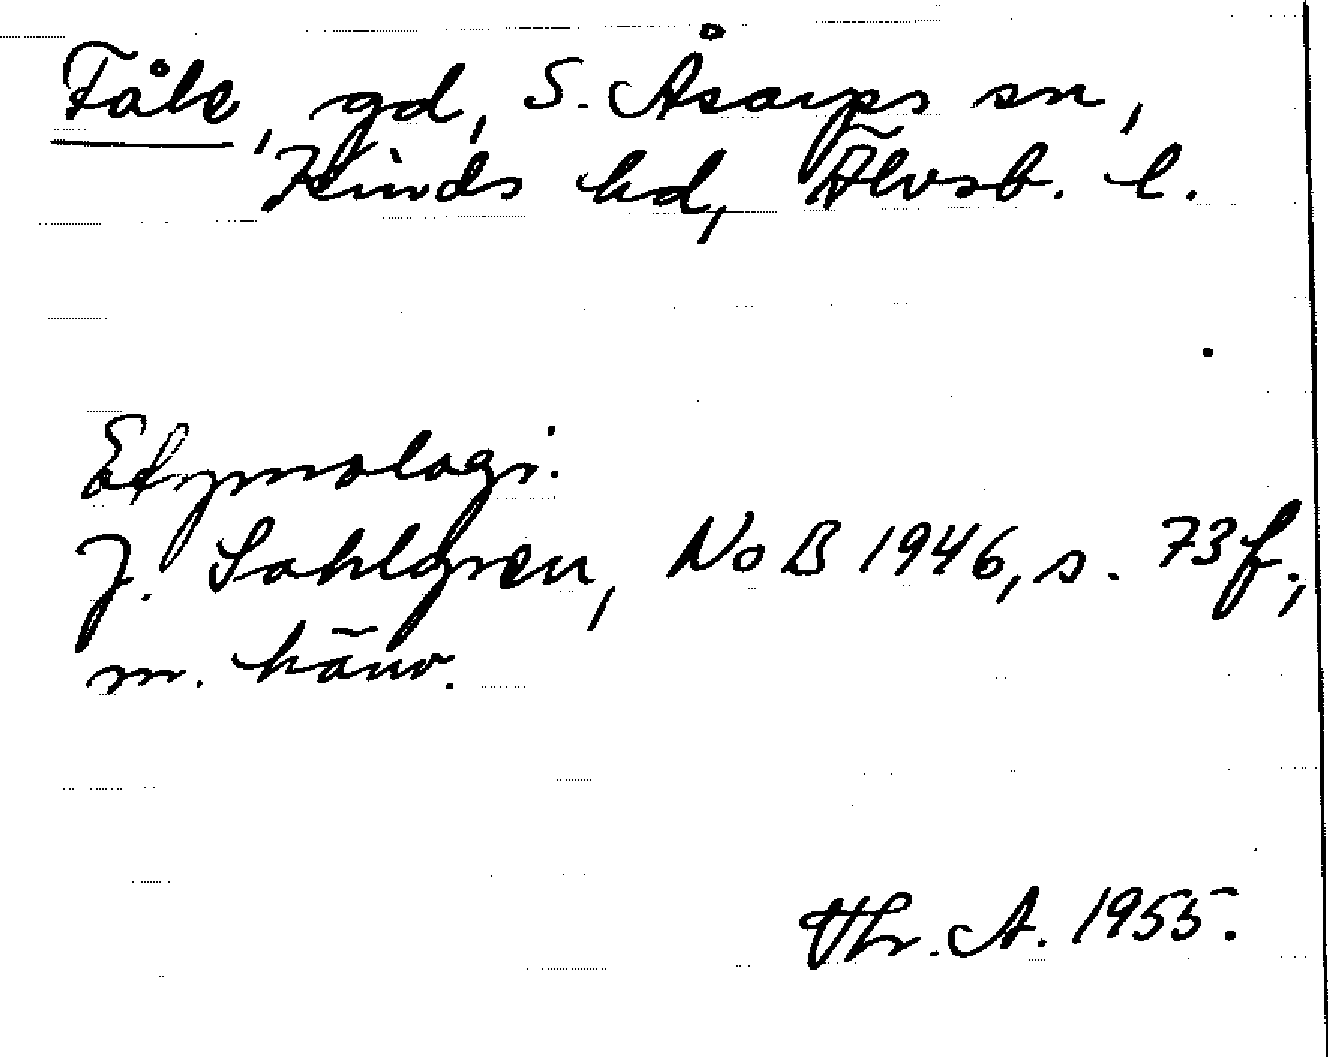 Fåle, gd, S. Åsarps sn,
Kinds hd, Älvsb. l.
Etymologi.
J. Sahlgren, NoB 1946, s. 73f.,
m. hänv.
Thr. A. 1955.